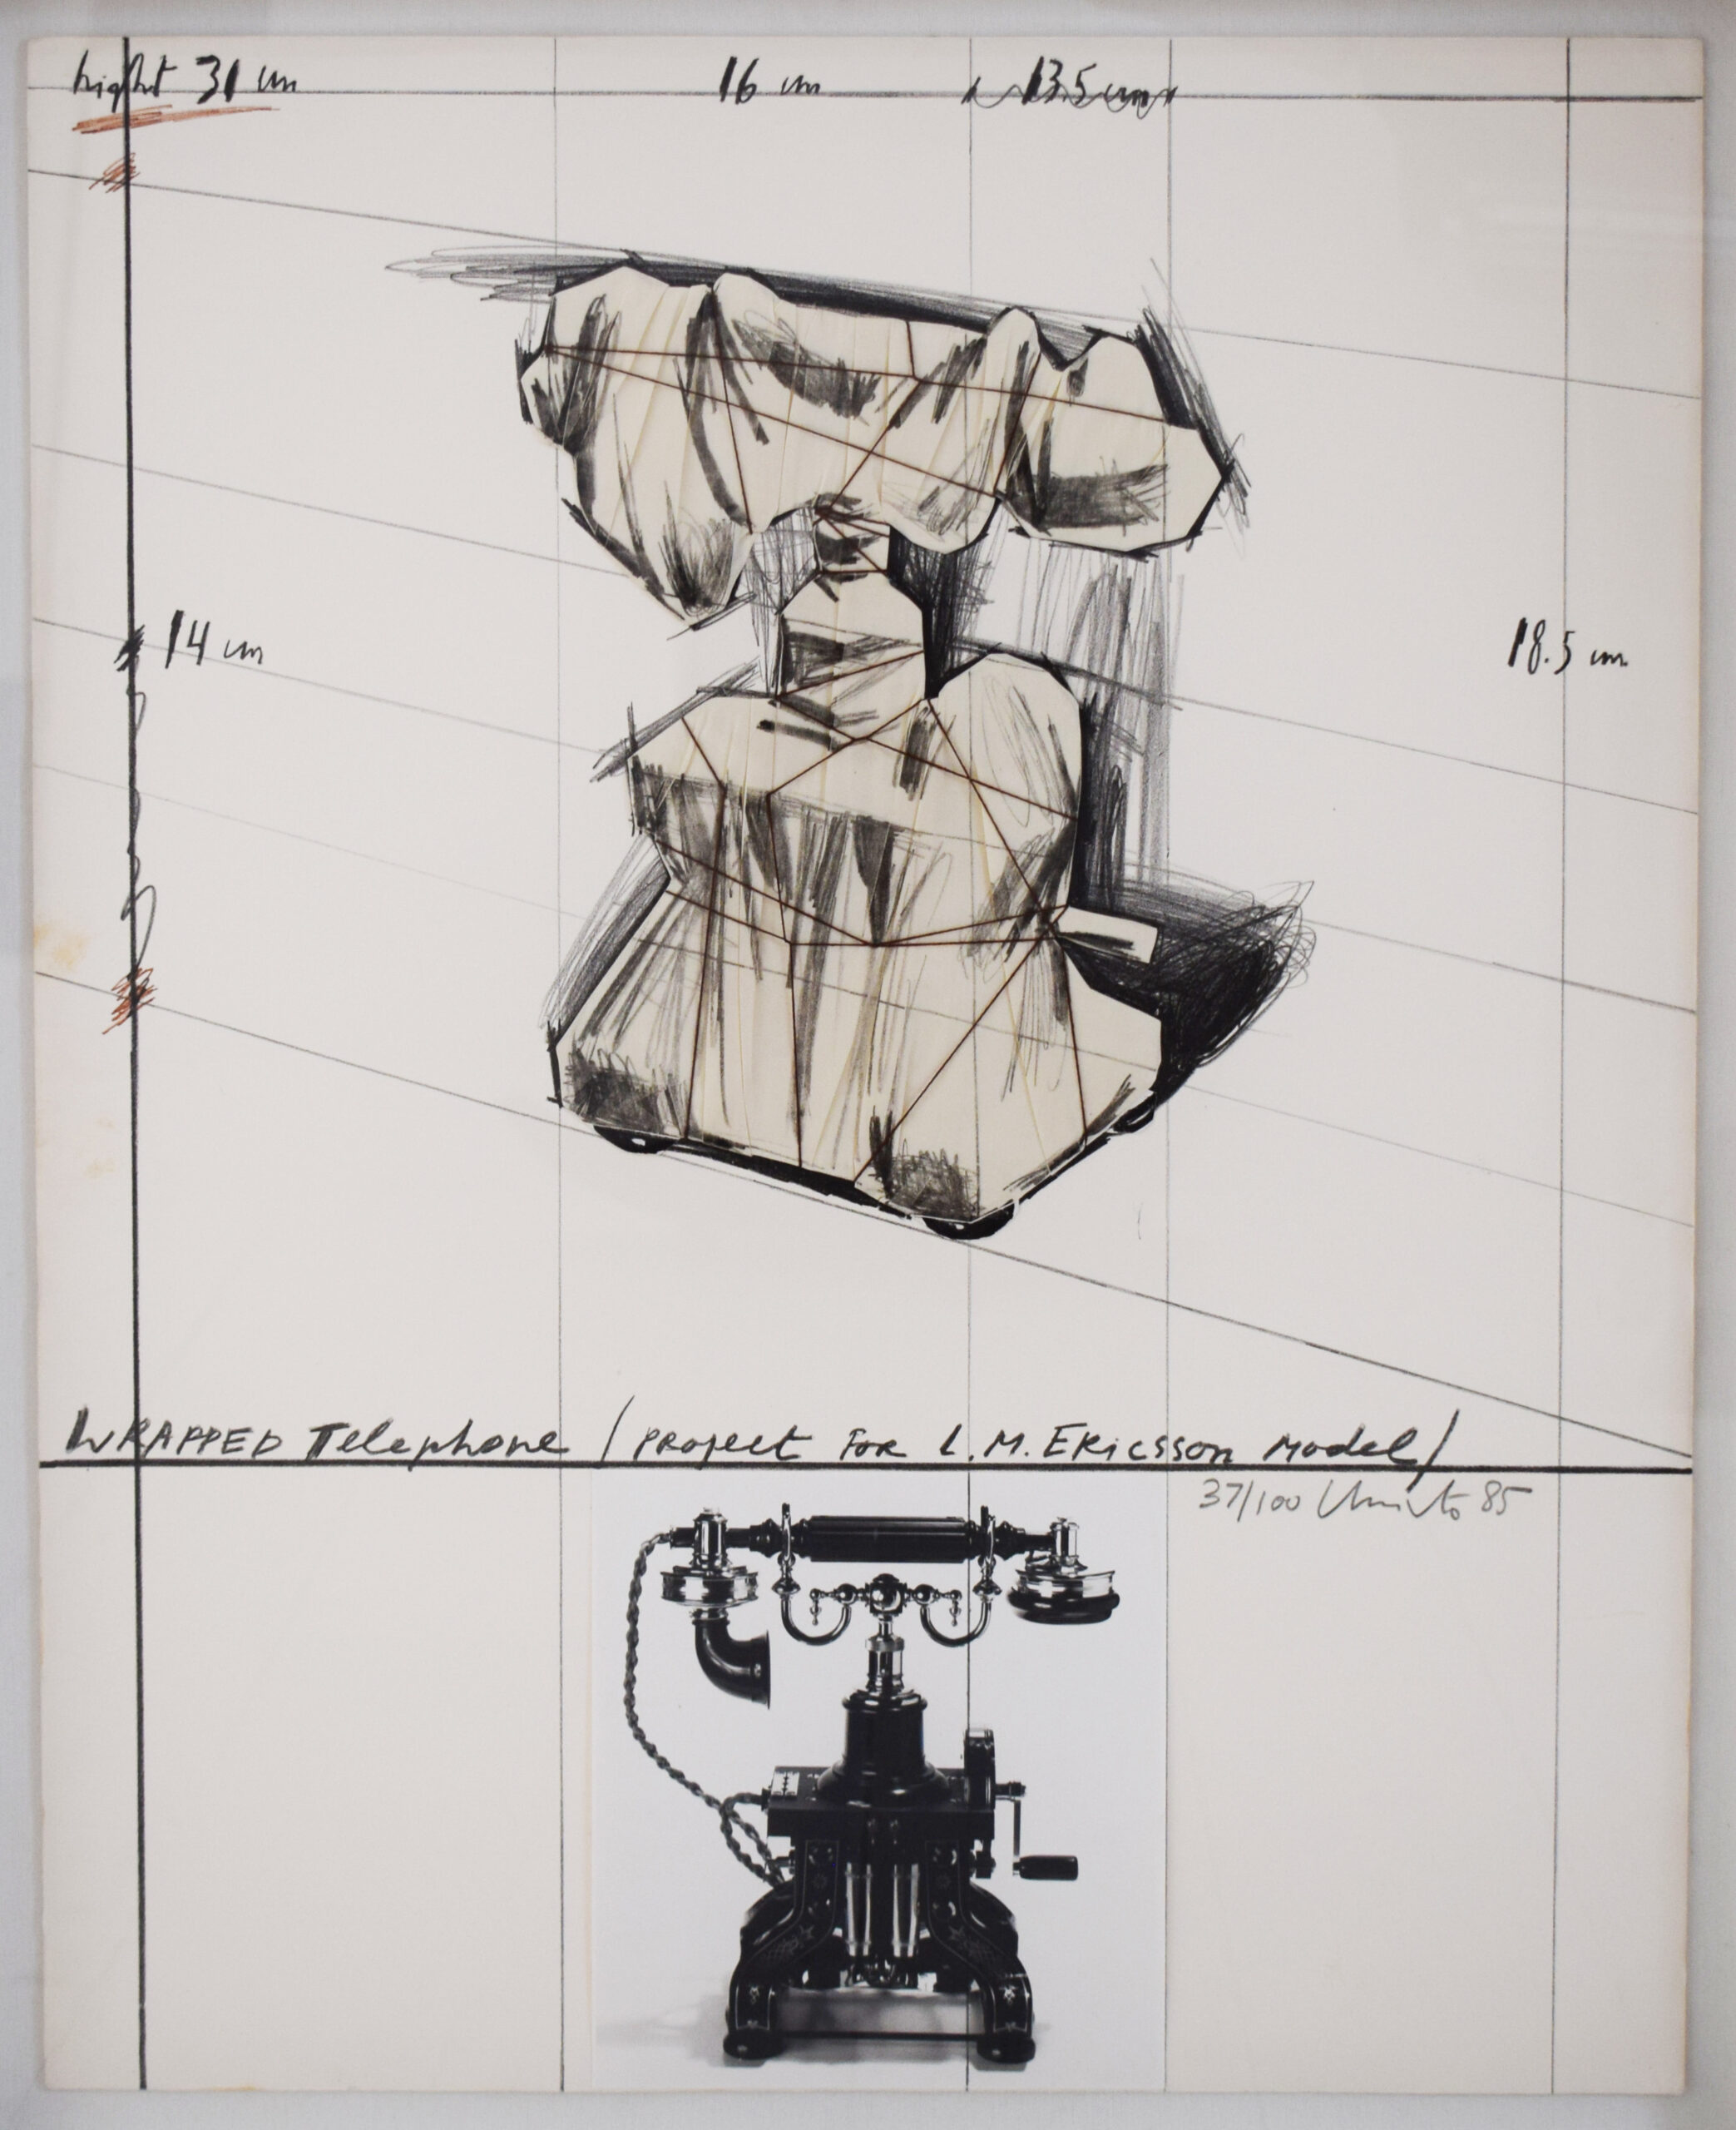 hight 31 cm
16 cm
13.5 cm
14 cm
18.5 cm
WRAPPED Telephone / PROJECT FOR L.M. ERicsson Model /
37/100 Christo 85